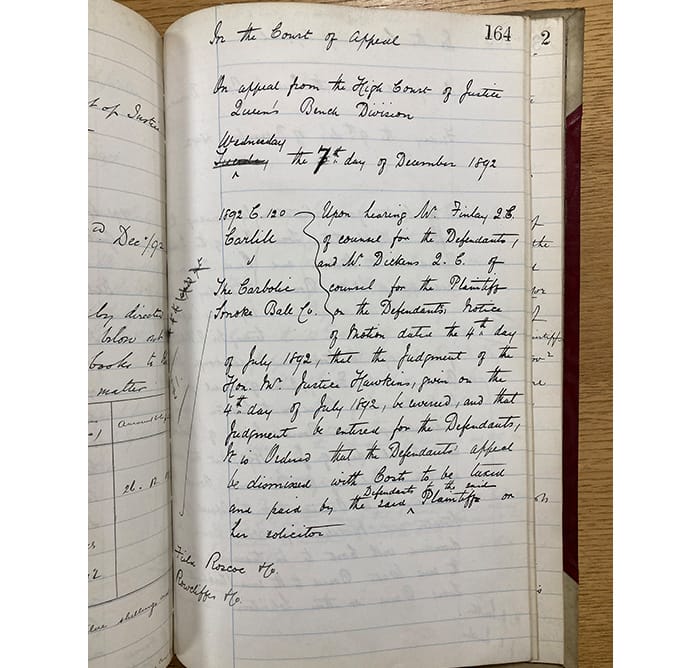 t of Justice
Dec./92
by direction
below set
books to
matter
In the Court of Appeal
164
2
On appeal from the High Court of Justice
Queen's Bench Division
Wednesday
Tuesday the 7th day of December 1892
1892 C. 120
Carlill
v
The Carbolic
Smoke Ball Co.
Upon hearing Mr. Finlay Q.C.
of counsel for the Defendants,
and Mr. Dickens Q.C. of
counsel for the Plaintiff
on the Defendants Notice
of Motion dated the 4th day
of July 1892, that the Judgment of the
Hon Mr. Justice Hawkins, given on the
4th day of July 1892, be reversed, and that
Judgment be entered for the Defendants,
It is Ordered that the Defendants' appeal
be dismissed with Costs to be taxed
Defendants to the said
and paid by the said Plaintiff or
her solicitor
Field Roscoe & Co.
Rowcliffes & Co.
the